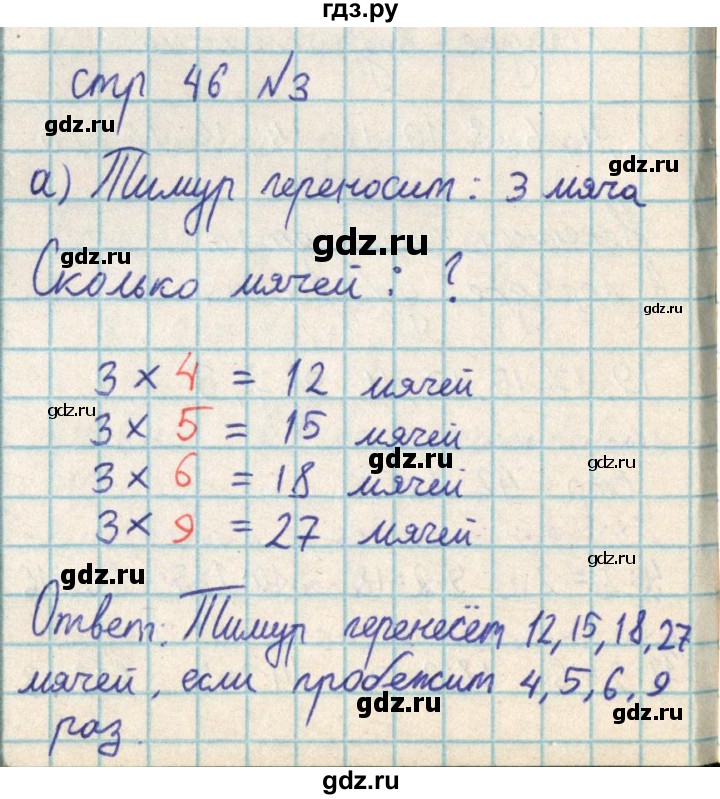 гдз.ру
стр 46 №3
gdz.ru
gdz.ru
а) Тимур переносит: 3 мяча
gdz.ru
gdz.ru
Сколько мячей: ?
gdz.ru
3 × 4 = 12 мячей
gdz.ru
3 × 5 = 15 мячей
gdz.ru
gdz.ru
3 × 6 = 18 мячей
3 × 9 = 27 мячей
gdz.ru
gdz.ru
Ответ: Тимур перенесёт 12, 15, 18, 27
gdz.ru
gdz.ru
мячей, если пробежит 4, 5, 6, 9
gdz.ru
gdz.ru
раз.
gdz.ru